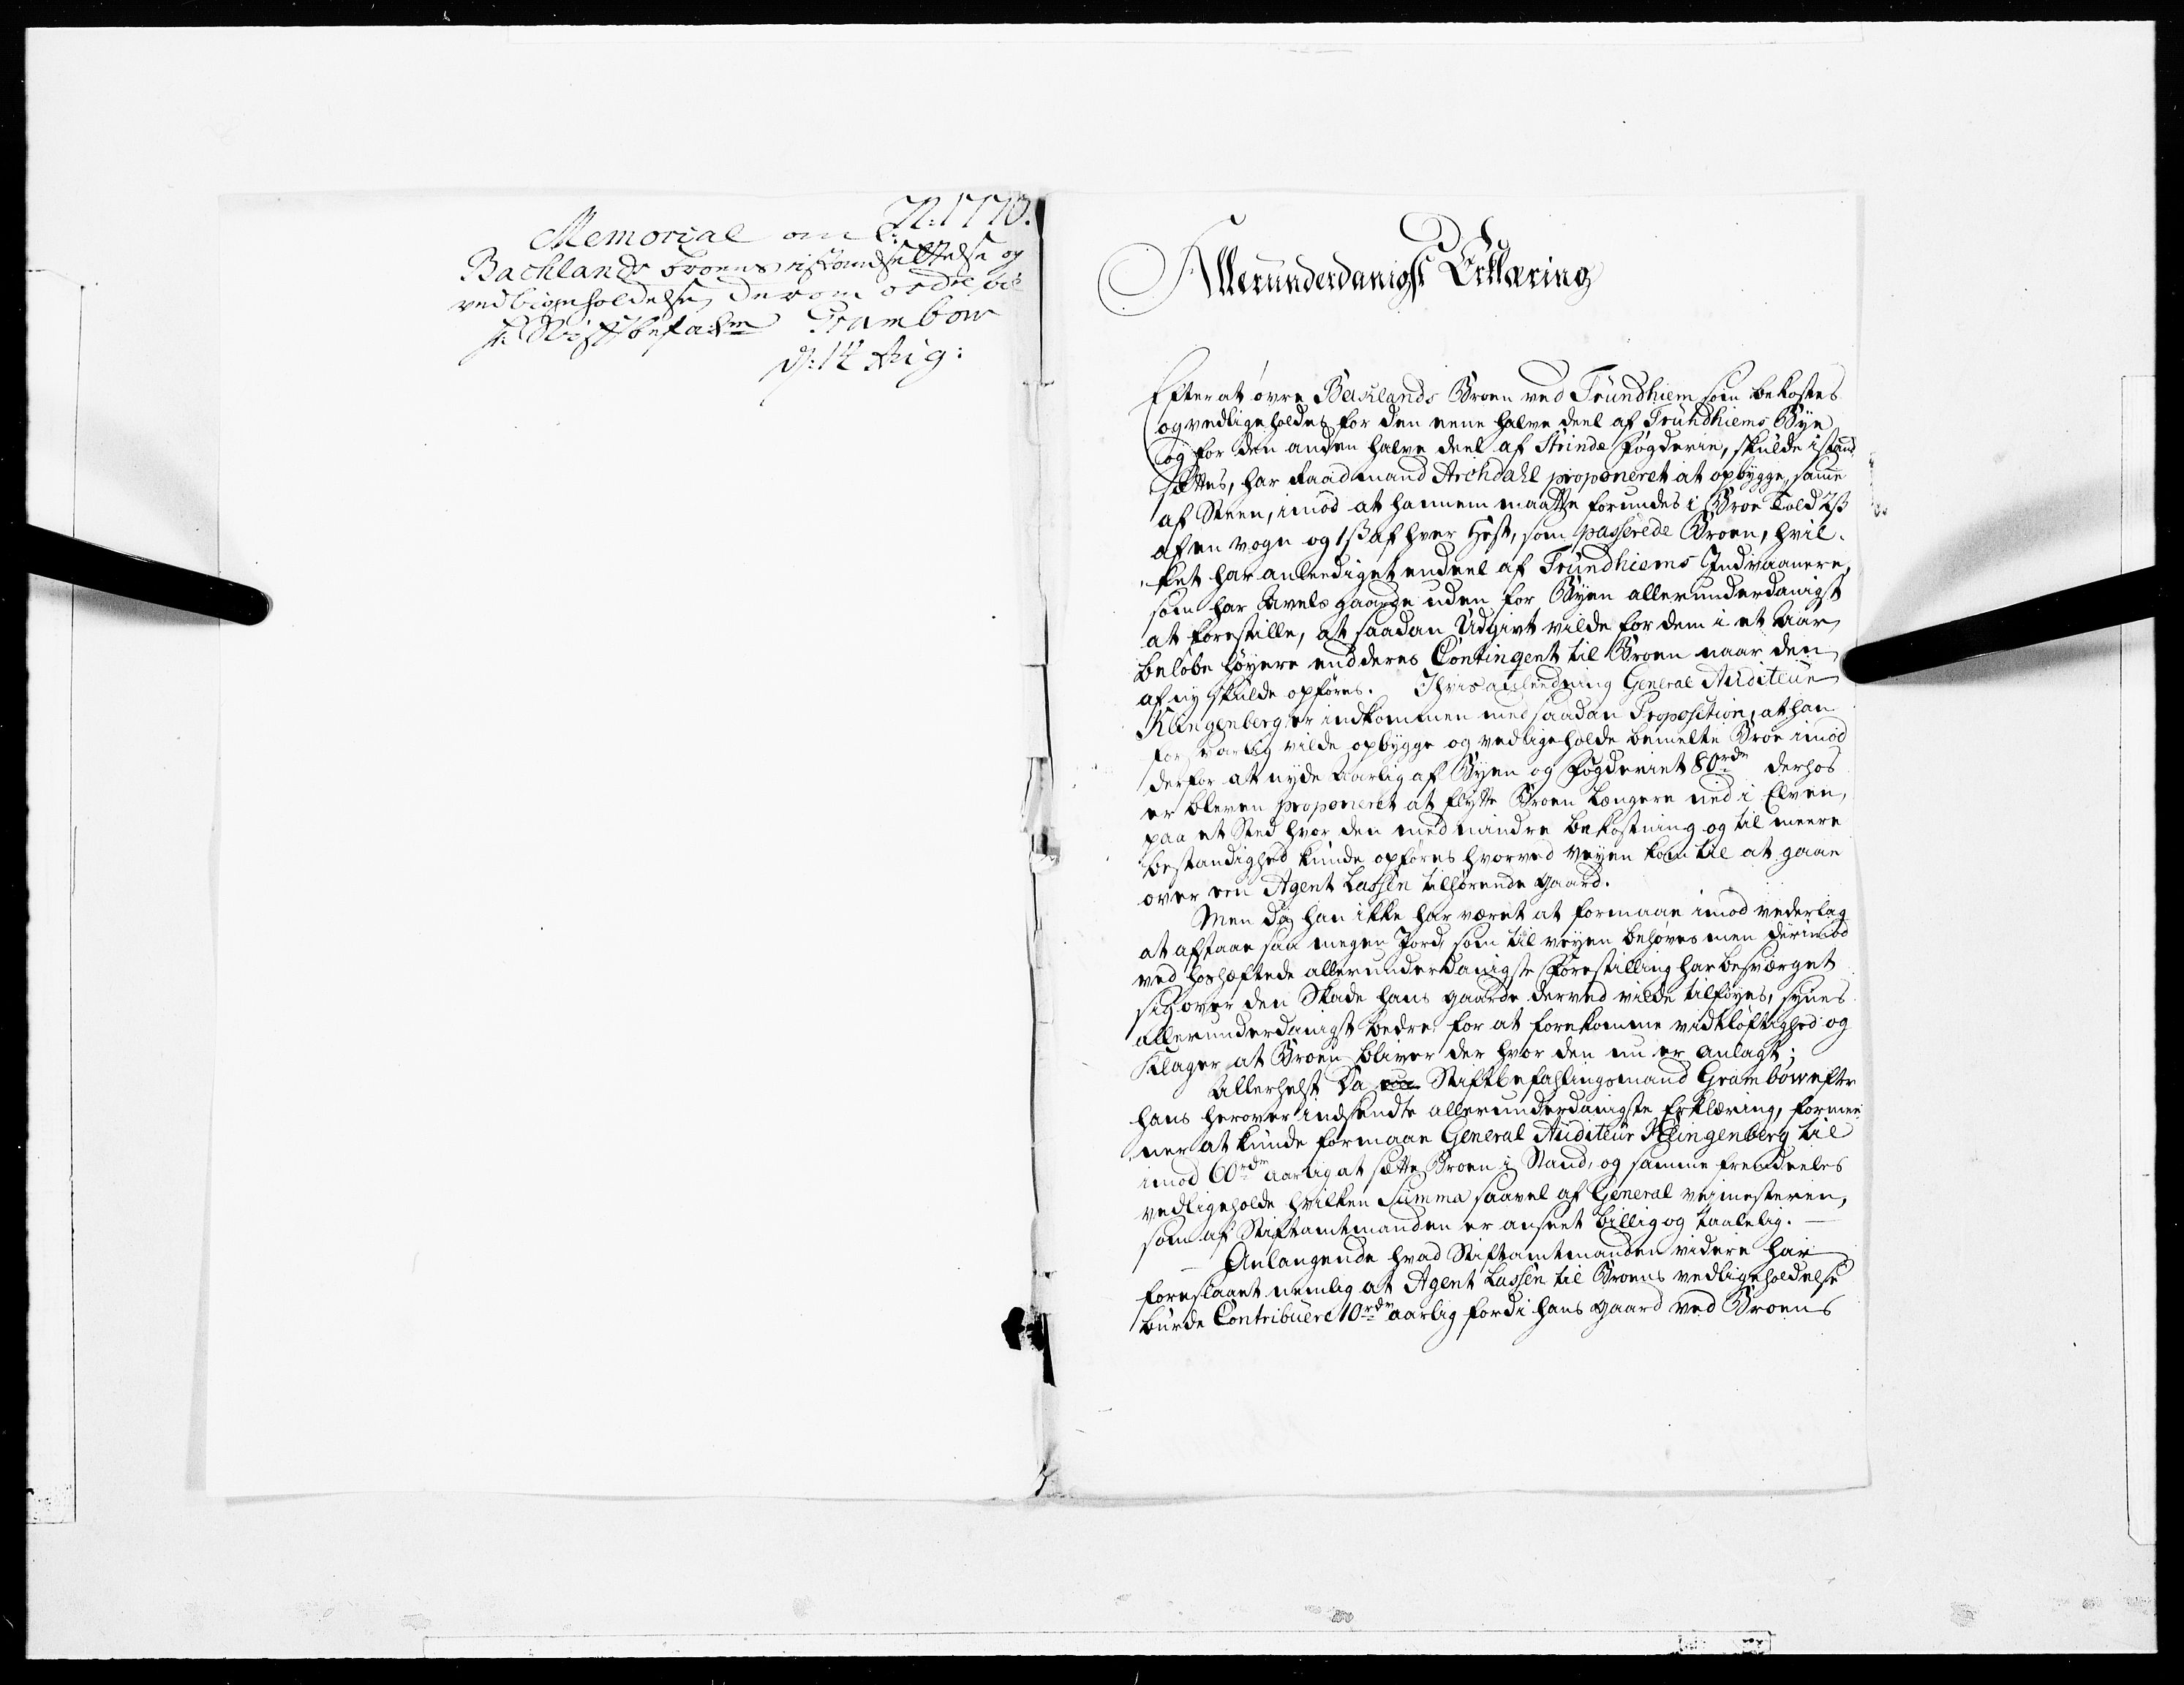 N: 1770.
Memorial om
Bachlands Broens istandsettelse og
vedligeholdelse, derom ordre til
hr. Stiftsbefalm Grambow
d: 14 Aug:
Allerunderdanigst Erklæring
Efter at øvre Baklands Broen ved Trundhiem som bekostes
og vedligeholdes for den eene halve deel af Trundhiems Bÿe
og for den anden halve deel af Strinde Fogderie, skulde istand
sættes, har Raadmand Archdahl proponeret at opbygge, samme
af Steen, imod at hannem maatte forundes i Broe Told 2ß
af en vogn og 1ß af hver Hest, som passerede Broen, hvil-
ket har anleediget endeel af Trundhiems Indvaanere,
som har Avels gaarde uden for Byen allerunderdanigst
at forestille, at saadan Udgivt vilde for dem i et Aar
beløbe høyere end deres Contingent til Broen naar den
af ny skulde opføres. I hvis anleedning General Auditeur
Klingenberg er indkommen med saadan Proposition, at han
forsvarlig vilde opbygge og vedligeholde bemelte Broe imod
derfor at nyde Aarlig af Byen og Fogderiet 80 rdr derhos
er bleven proponeret at flytte Broen længere ned i Elven,
paa et Sted hvor den med mindre bekostning og til meere
bestandighed kunde opføres hvorved veyen kom til at gaae
over een Agent Lassen tilhørende gaard.
Men da han ikke har været at formaae imod vederlag
at afstaae saa megen Jord, som til veyen behøves men derimod
ved hoshæftede allerunderdanigste Forestilling har besværget
sig over den Skade hans gaarde derved vilde tilføyes, synes
allerunderdanigst bedre for at forekomme vidtløftighed og
Klager at Broen bliver der hvor den nu er anlagt;
Allerhelst da Stiftbefahlingsmand Grambow efter
hans herover indsendte allerunderdanigste Erklæring, formee-
ner at kunde formaae General Auditeur Klingenberg til
imod 60 rdr aarlig at sætte Broen i Stand, og samme fremdeeles
vedligeholde hvilken Summa saavel af General veimesteren,
som af Stiftamtmanden er anseet billig og taalelig. -
- Anlangende hvad Stiftamtmanden videre har
foreslaaet nemlig at Agent Lassen til Broens vedligeholdelse
burde Contribuere 10 rdr aarlig fordi hans gaard ved Broens